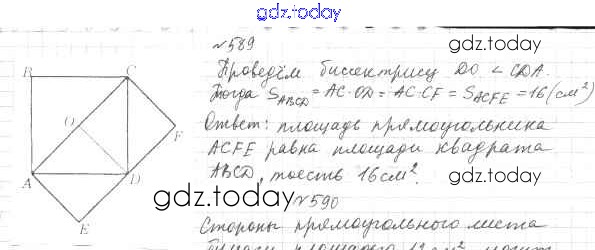 gdz.today
№589
gdz.today
Проведём биссектрису DO ∠ CDA.
Тогда S ABCD = AC·OD = AC·CF = S ACFE = 16 (см²)
Ответ: площадь прямоугольника
ACFE равна площади квадрата
ABCD, то есть 16 см².
gdz.today
gdz.today
№590
Стороны прямоугольного листа
бумаги площадью 12 см² могут
B
C
O
F
A
D
E